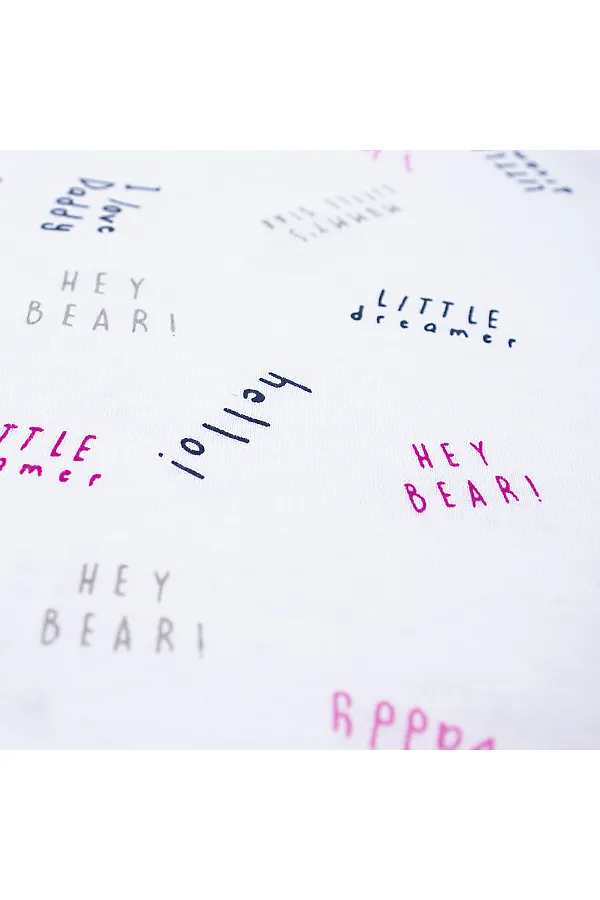 I love
Daddy
MOMMY'S
LITTLE STAR
LITTLE
HEY
BEAR!
LITTLE
dreamer
hello!
HEY
BEAR!
HEY
BEAR!